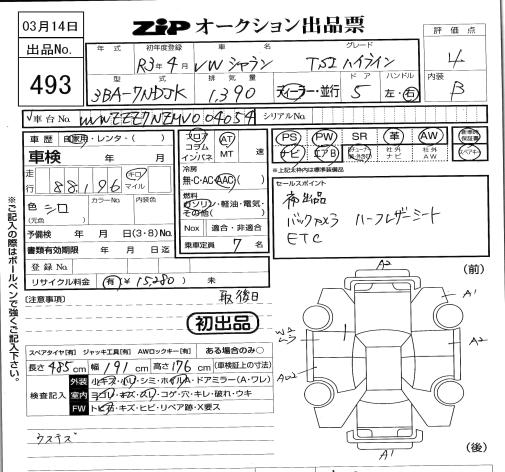 03月14日
ZiP オークション出品票
出品No.
493
年式 初年度登録 車名 グレード
R3年4月 VWシャラン TSIハイライン
型式 排気量 ドア ハンドル
3BA-7NDJK 1,390 ディーラー・並行 5 左・右
評価点
4
内装
B
車台No. WVWZZZ7NZMV004054 シリアルNo.
車歴 自家用・レンタ・( )
車検 年 月
走行 88,196 キロ マイル
色 シロ (元色) カラーNo. 内装色
予備検 年 月 日(3・8)No.
書類有効期限 年 月 日迄
登録No.
リサイクル料金 有 ¥15,280 未
フロア コラム インパネ
AT MT 速
冷房
無・C・AC・AAC
燃料
ガソリン・軽油・電気・その他( )
Nox 適合・非適合
乗車定員 7 名
PS PW SR 革 AW 保証書
ナビ エアB 社外ナビ 社外AW スペアキー
※上記全枠内は標準装備品
セールスポイント
初出品
バックカメラ ハーフレザーシート
ETC
(注意事項) 取後日
初出品
スペアタイヤ[有] ジャッキ工具[有] AWロックキー[有] ある場合のみ〇
長さ485cm 幅191cm 高さ176cm (車検証上の寸法)
検査記入
外装 小キズ・小凹・シミ・ホイルA・ドアミラー(A・ワレ)
室内 ヨゴレ・キズ・スリ・コゲ穴・キレ・破れ・ウキ
FW トビ石・キズ・ヒビ・リペア跡・X要ス
ウスキズ
※ご記入の際はボールペンで強くご記入下さい。
(前)
A2
A1
A2
A1
(後)